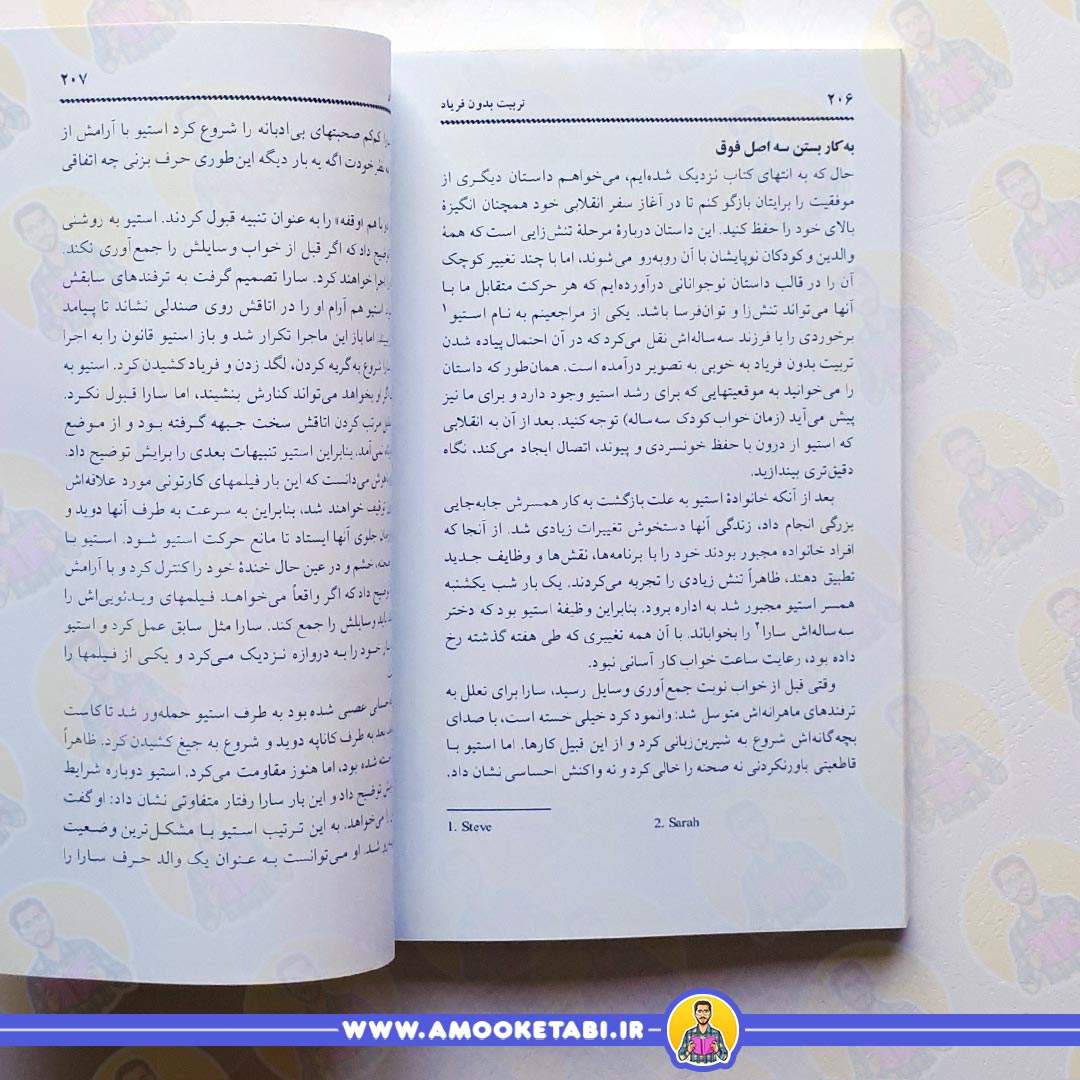 ۲۰۶
تربیت بدون فریاد
به‌کار بستن سه اصل فوق
حال که به انتهای کتاب نزدیک شده‌ایم، می‌خواهم داستان دیگری از
موفقیت را برایتان بازگو کنم تا در آغاز سفر انقلابی خود همچنان انگیزهٔ
بالای خود را حفظ کنید. این داستان دربارهٔ مرحلهٔ تنش‌زایی است که همهٔ
والدین و کودکان نوپایشان با آن روبه‌رو می‌شوند، اما با چند تغییر کوچک
آن را در قالب داستان نوجوانانی درآورده‌ایم که هر حرکت متقابل ما با
آنها می‌تواند تنش‌زا و توان‌فرسا باشد. یکی از مراجعینم به نام استیو۱
برخوردی را با فرزند سه‌ساله‌اش نقل می‌کرد که در آن احتمال پیاده شدن
تربیت بدون فریاد به خوبی به تصویر درآمده است. همان‌طور که داستان
را می‌خوانید به موقعیتهایی که برای رشد استیو وجود دارد و برای ما نیز
پیش می‌آید (زمان خواب کودک سه‌ساله) توجه کنید. بعد از آن به انقلابی
که استیو از درون با حفظ خونسردی و پیوند، اتصال ایجاد می‌کند، نگاه
دقیق‌تری بیندازید.
بعد از آنکه خانوادهٔ استیو به علت بازگشت به کار همسرش جابه‌جایی
بزرگی انجام داد، زندگی آنها دستخوش تغییرات زیادی شد. از آنجا که
افراد خانواده مجبور بودند خود را با برنامه‌ها، نقش‌ها و وظایف جدید
تطبیق دهند، ظاهراً تنش زیادی را تجربه می‌کردند. یک بار شب یکشنبه
همسر استیو مجبور شد به اداره برود. بنابراین وظیفهٔ استیو بود که دختر
سه‌ساله‌اش سارا۲ را بخواباند. با آن همه تغییری که طی هفته گذشته رخ
داده بود، رعایت ساعت خواب کار آسانی نبود.
وقتی قبل از خواب نوبت جمع‌آوری وسایل رسید، سارا برای تعلل به
ترفندهای ماهرانه‌اش متوسل شد: وانمود کرد خیلی خسته است، با صدای
بچه‌گانه‌اش شروع به شیرین‌زبانی کرد و از این قبیل کارها. اما استیو با
قاطعیتی باورنکردنی نه صحنه را خالی کرد و نه واکنش احساسی نشان داد.
1. Steve 2. Sarah
۲۰۷
کم‌کم صحبتهای بی‌ادبانه را شروع کرد استیو با آرامش از
خودت اگه یه بار دیگه این‌طوری حرف بزنی چه اتفاقی
هم «وقفه» را به عنوان تنبیه قبول کردند. استیو به روشنی
داد که اگر قبل از خواب وسایلش را جمع‌آوری نکند.
خواهند کرد. سارا تصمیم گرفت به ترفندهای سابقش
استیو هم آرام او را در اتاقش روی صندلی نشاند تا پیامد
اما باز این ماجرا تکرار شد و باز استیو قانون را به اجرا
شروع به گریه کردن، لگد زدن و فریاد کشیدن کرد. استیو به
او بخواهد می‌تواند کنارش بنشیند، اما سارا قبول نکرد.
مرتب کردن اتاقش سخت جبهه گرفته بود و از موضع
نمی‌آمد. بنابراین استیو تنبیهات بعدی را برایش توضیح داد.
می‌دانست که این بار فیلمهای کارتونی مورد علاقه‌اش
توقیف خواهند شد، بنابراین به سرعت به طرف آنها دوید و
جلوی آنها ایستاد تا مانع حرکت استیو شود. استیو با
خشم و در عین حال خندهٔ خود را کنترل کرد و با آرامش
داد که اگر واقعاً می‌خواهد فیلمهای ویدئویی‌اش را
باید وسایلش را جمع کند. سارا مثل سابق عمل کرد و استیو
خود را به دروازه نزدیک می‌کرد و یکی از فیلمها را
عصبی شده بود به طرف استیو حمله‌ور شد تا کاست
به طرف کاناپه دوید و شروع به جیغ کشیدن کرد. ظاهراً
شده بود، اما هنوز مقاومت می‌کرد. استیو دوباره شرایط
توضیح داد و این بار سارا رفتار متفاوتی نشان داد: او گفت
می‌خواهد. به این ترتیب استیو با مشکل‌ترین وضعیت
شد. او می‌توانست به عنوان یک والد حرف سارا را
WWW.AMOOKETABI.IR